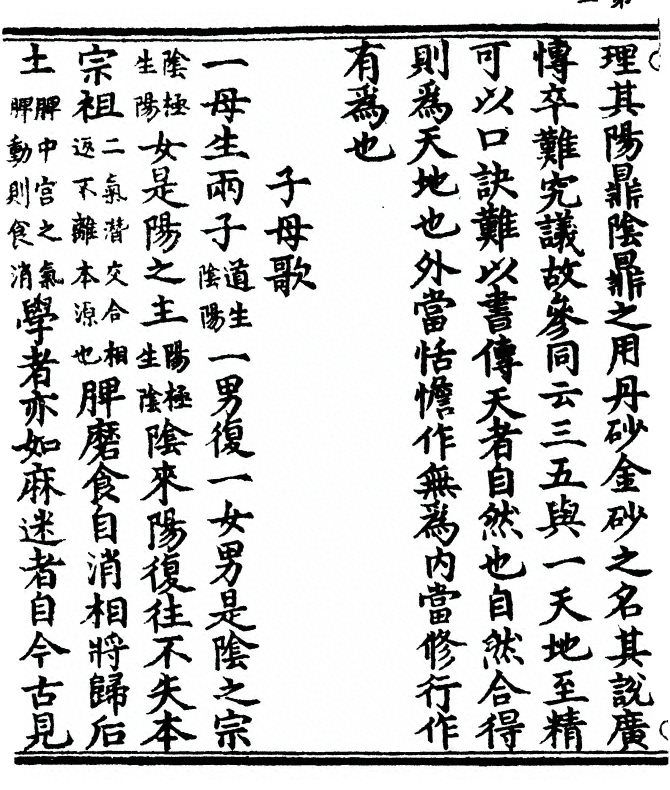 理其陽鼎陰鼎之用丹砂金砂之名其說廣
愽卒難究議故叅同云三五與一天地至精
可以口訣難以書傳天者自然也自然合得
則爲天地也外當恬憺作無爲內當修行作
有爲也
子母歌
一母生兩子道生陰陽一男復一女男是陰之宗
陰極生陽女是陽之主陽極生陰陰來陽復往不失本
宗祖二氣潛交合相返不離本源也脾磨食自消相將歸后
土脾中宮之氣脾動則食消學者亦如麻迷者自今古見